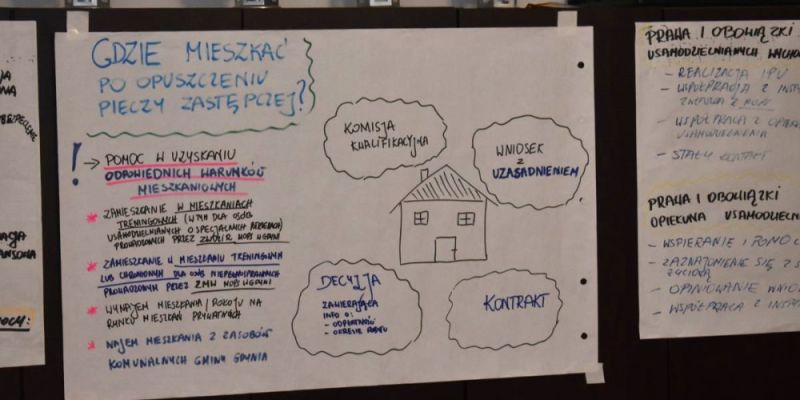 GDZIE MIESZKAĆ
PO OPUSZCZENIU
PIECZY ZASTĘPCZEJ?
! → POMOC W UZYSKANIU
ODPOWIEDNICH WARUNKÓW
MIESZKANIOWYCH
* ZAMIESZKANIE W MIESZKANIACH
TRENINGOWYCH (W TYM DLA OSÓB
USAMODZIELNIANYCH O SPECJALNYCH
PROWADZONYCH PRZEZ MOPS W GDYNI
* ZAMIESZKANIE W MIESZKANIU TRENINGOWYM
LUB CHRONIONYM DLA OSÓB NIEPEŁNOSPRAWNYCH
PROWADZONYM PRZEZ ZMW MOPS W GDYNI
* WYNAJEM MIESZKANIA / POKOJU NA
RYNKU MIESZKAŃ PRYWATNYCH
* NAJEM MIESZKANIA Z ZASOBÓW
KOMUNALNYCH GMINY GDYNIA
KOMISJA
KWALIFIKACYJNA
WNIOSEK
Z
UZASADNIENIEM
DECYZJA
ZAWIERAJĄCA
INFO O:
- ODPŁATNOŚĆ
- OKRESIE POBYTU
KONTRAKT
PRAWA I OBOWIĄZKI
USAMODZIELNIANYCH WYCHO
- REALIZACJA IPU
- WSPÓŁPRACA Z INST
- WSPÓŁPRACA Z OPIEK
USAMODZIELNIENIA
- STAŁY KONTAKT
PRAWA I OBOWIĄZKI
OPIEKUNA USAMODZIELN
- WSPIERANIE I POMOC
- ZAZNAJOMIENIE SIĘ Z S
- OPINIOWANIE
- WSPÓŁPRACA Z INST